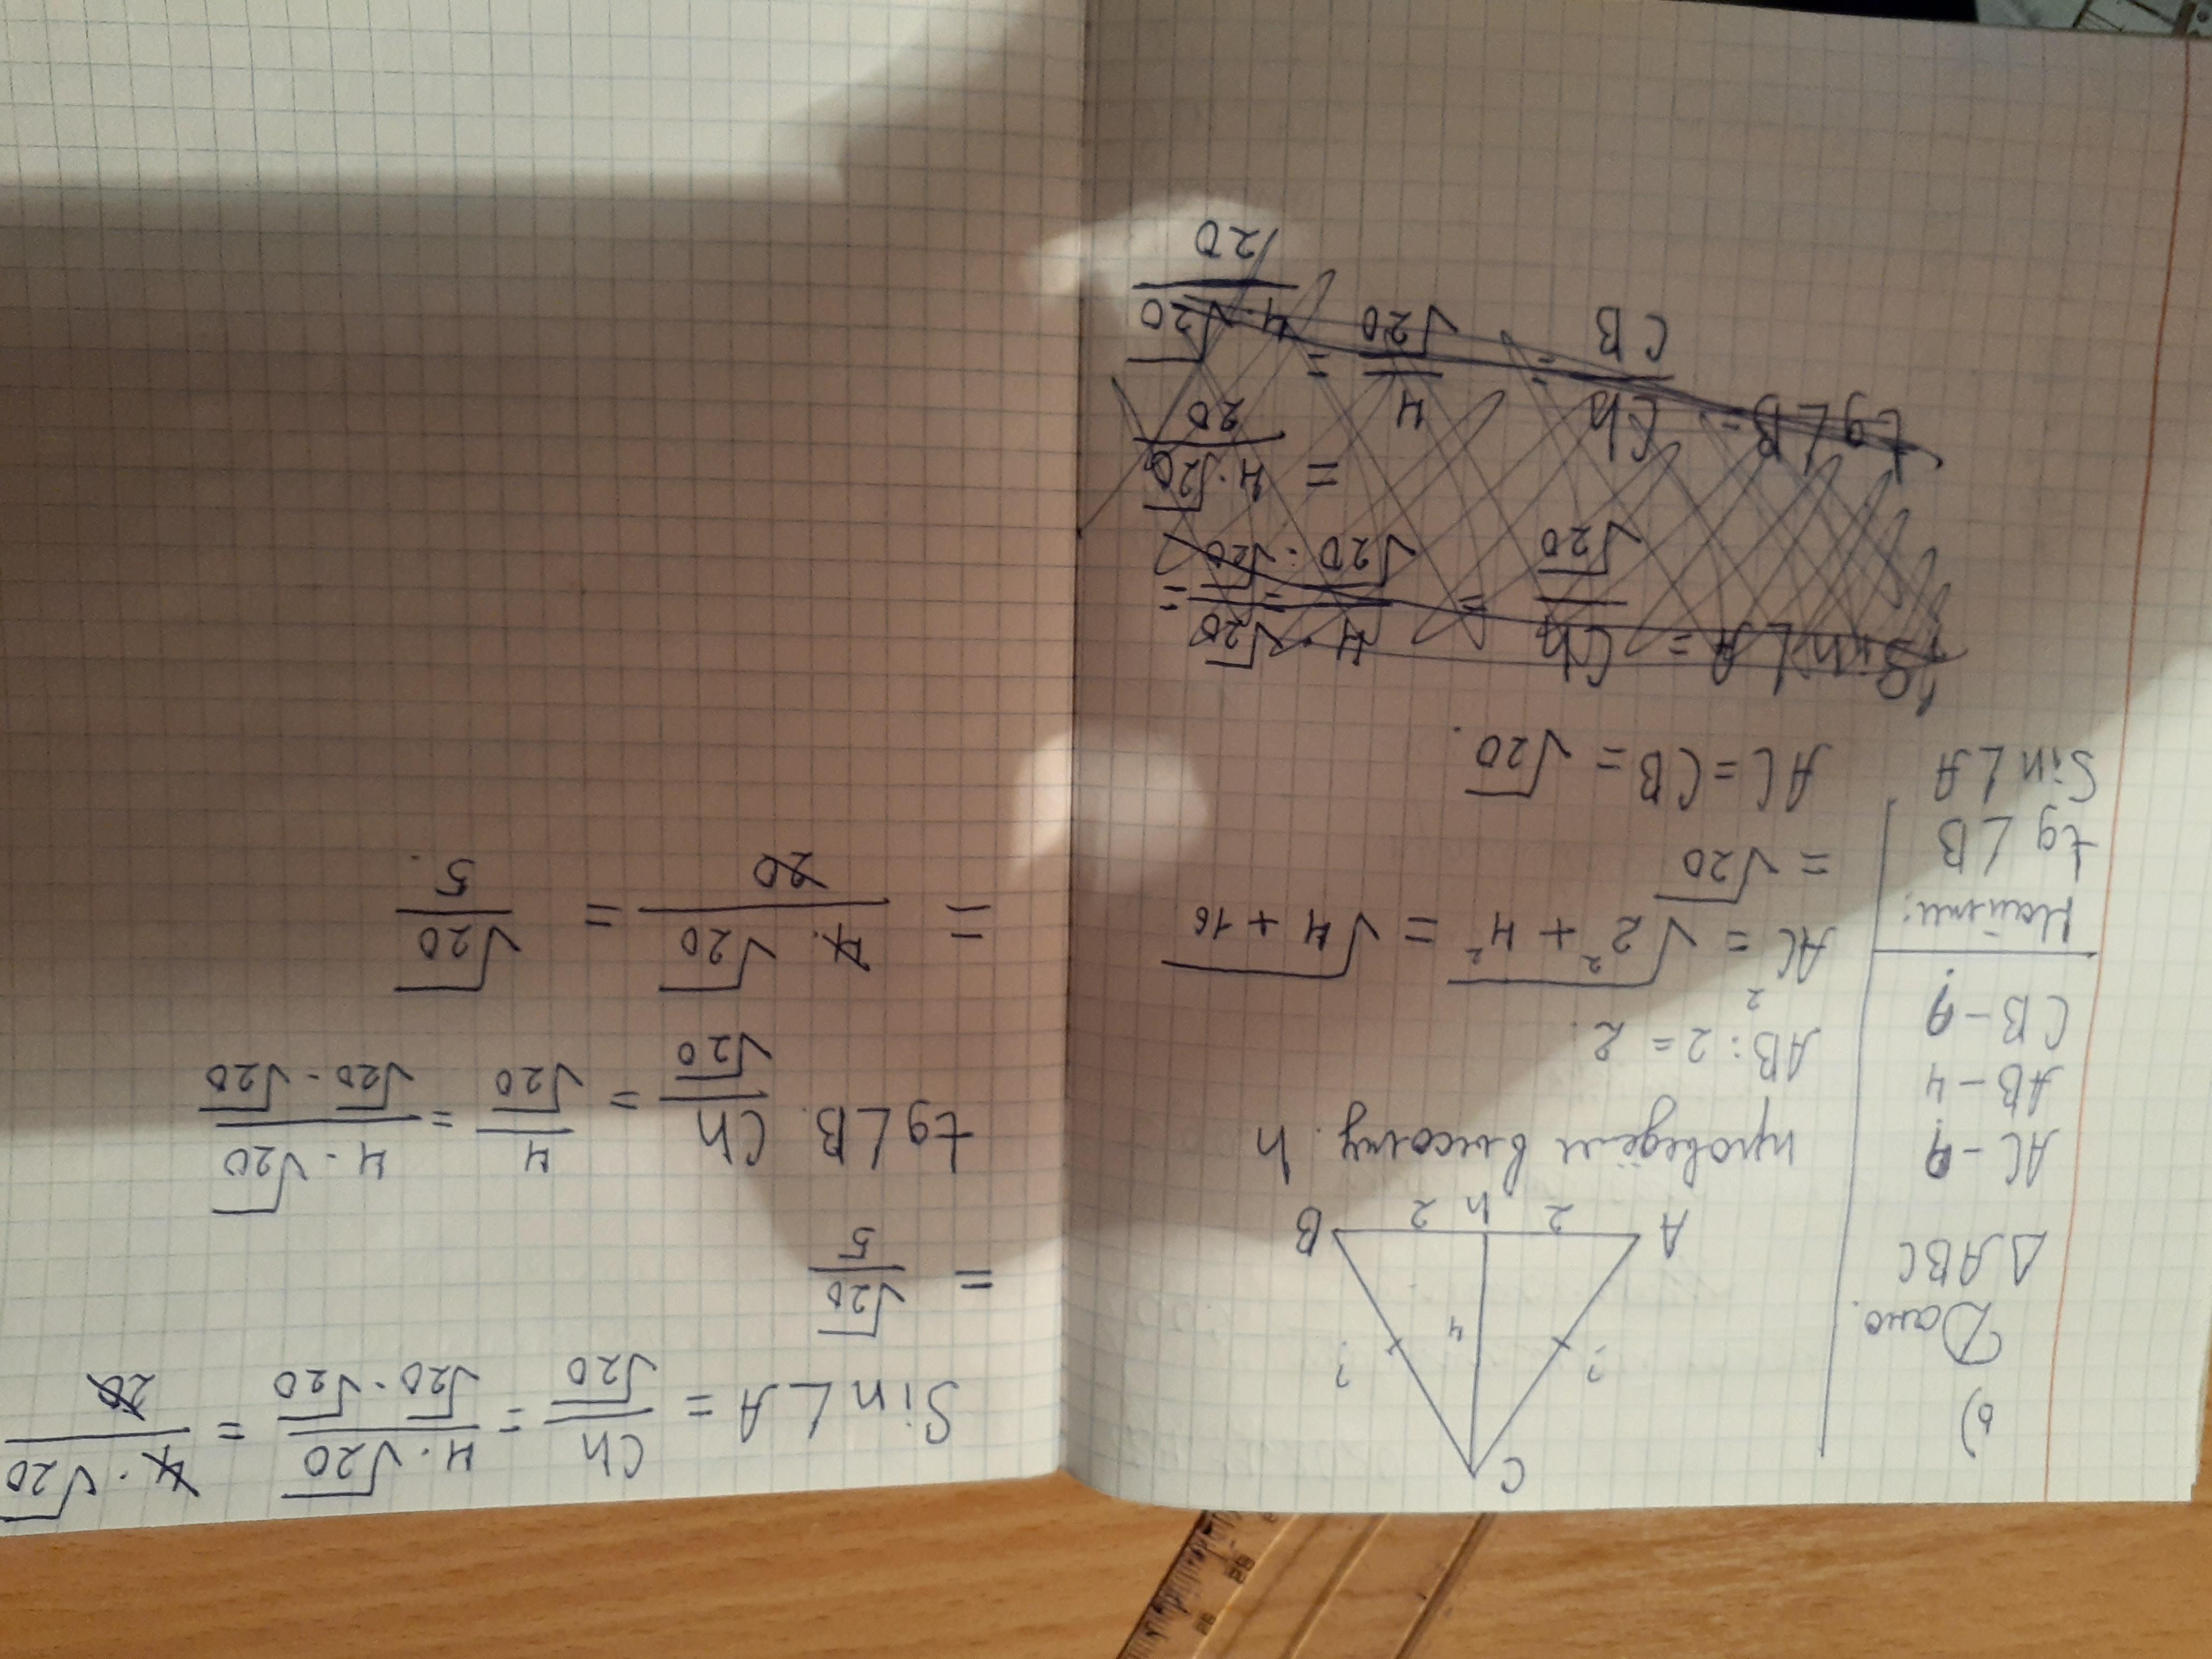 б)
Дано.
△ABC
AC - ?
AB - 4
CB - ?
Найти:
tg∠B
Sin∠A
C
? 4 ?
A 2 h 2 B
проведём высоту h
AB : 2 = 2.
AC² = √2² + 4² = √4 + 16
= √20
AC = CB = √20.
Sin∠A = Ch/√20 = 4·√20/√20·√20 =
= 4·√20/20
tg∠B = Ch/CB = 4/√20 = 4·√20/20
Sin∠A = Ch/√20 = 4·√20/√20·√20 = 4·√20/20
= √20/5
tg∠B. Ch/√20 = 4/√20 = 4·√20/√20·√20
= 4·√20/20 = √20/5.
28